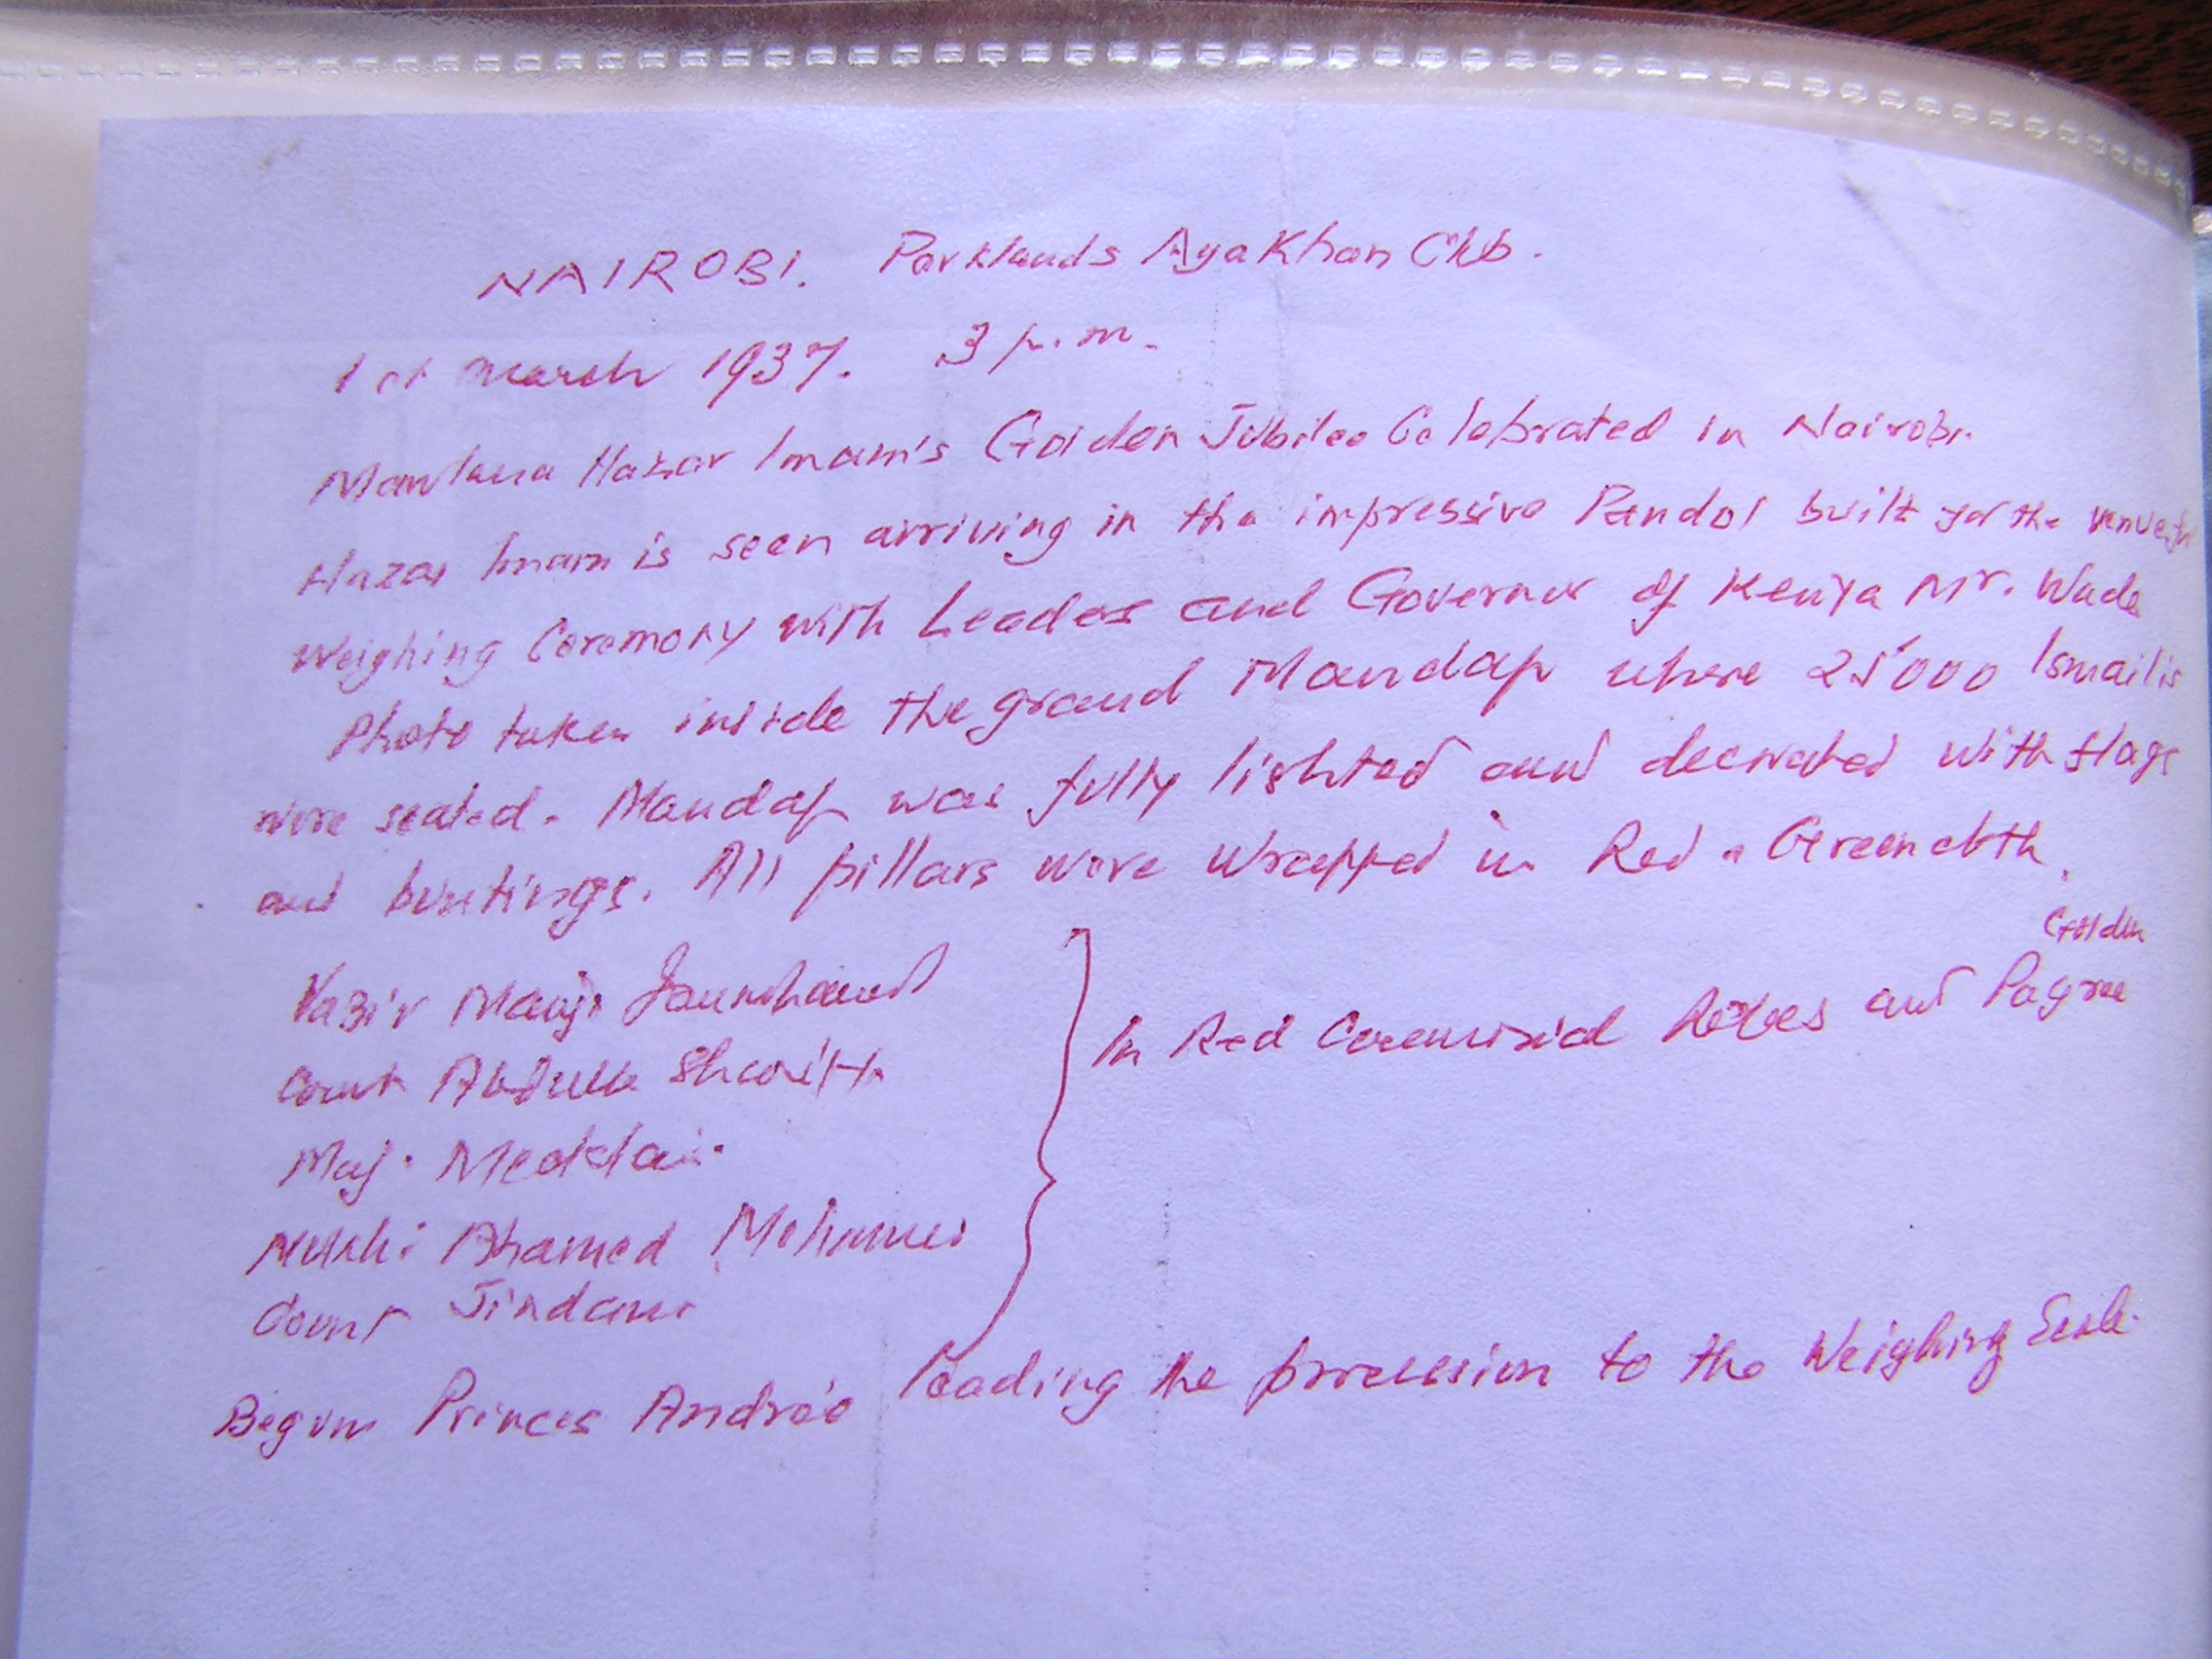 NAIROBI. Parklands Aga Khan Club.
1st March 1937. 3 p.m.
Mowlana Hazar Imam's Golden Jubilee Celebrated in Nairobi.
Hazar Imam is seen arriving in the impressive Pendol built for the venue of
Weighing Ceremony with Leaders and Governor of Kenya Mr. Wade
Photo taken inside the grand Mandap where 25'000 Ismailis
were seated. Mandap was fully lighted and decorated with flags
and buntings. All pillars were wrapped in Red & Green cloth.
Vazir Manji
Count Abdulla
In Red Ceremonial Robes and Golden Pagree
Maj.
Mukhi Ahamed
Count Jindani
Begum Princes Andrée leading the procession to the Weighing Scale.